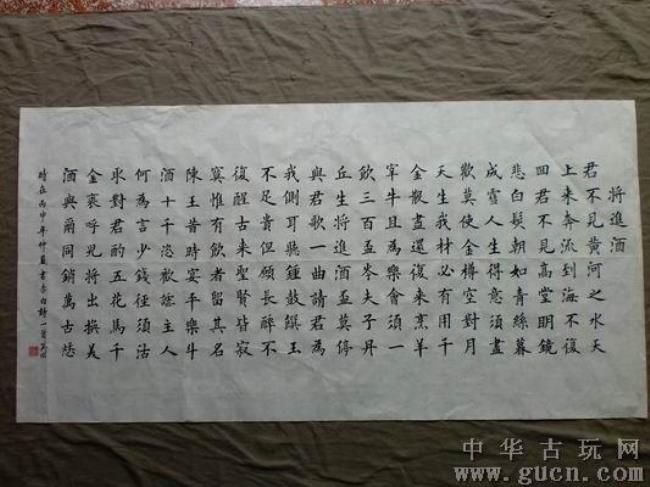 將進酒
君不見黃河之水天
上來奔流到海不復
回君不見高堂明鏡
悲白髮朝如青絲暮
成雪人生得意須盡
歡莫使金樽空對月
天生我材必有用千
金散盡還復來烹羊
宰牛且為樂會須一
飲三百盃岑夫子丹
丘生將進酒盃莫停
與君歌一曲請君為
我側耳聽鍾鼓饌玉
不足貴但願長醉不
復醒古來聖賢皆寂
寞惟有飲者留其名
陳王昔時宴平樂斗
酒十千恣歡謔主人
何為言少錢徑須沽
取對君酌五花馬千
金裘呼兒將出換美
酒與爾同銷萬古愁
時在丙申年仲夏書李白詩一首
中华古玩网
www.gucn.com